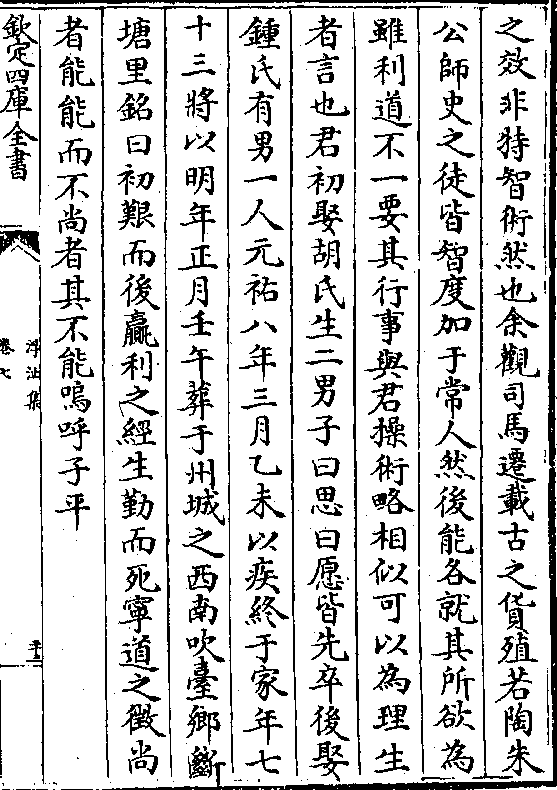 之效非特智術然也余觀司馬遷載古之貨殖若陶朱
公師史之徒皆智度加于常人然後能各就其所欲為
雖利道不一要其行事與君操術略相似可以為理生
者言也君初娶胡氏生二男子曰思曰愿皆先卒後娶
鍾氏有男一人元祐八年三月乙未以疾終于家年七
十三將以明年正月壬午葬于州城之西南吹臺鄉斷
塘里銘曰初艱而後贏利之經生勤而死寧道之徵尚
者能能而不尚者其不能嗚呼子平
欽定四庫全書
浮沚集
卷七